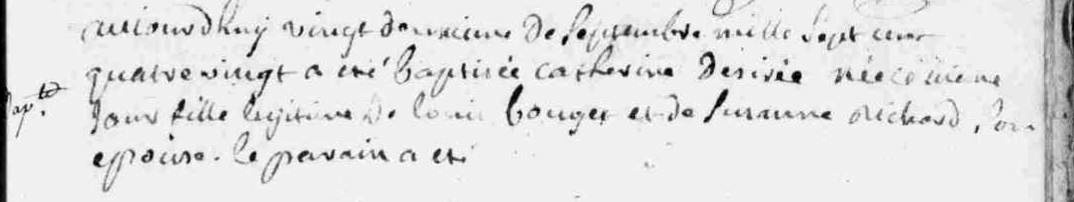 aujourdhuy vingt deuxieme de Septembre mille Sept cent
quatre vingt a eté baptisée catherine desirée née le meme
Bap.te
Jour fille legitime de louis bouget et de Suzanne Richard, Son
epouse. le parain a eté